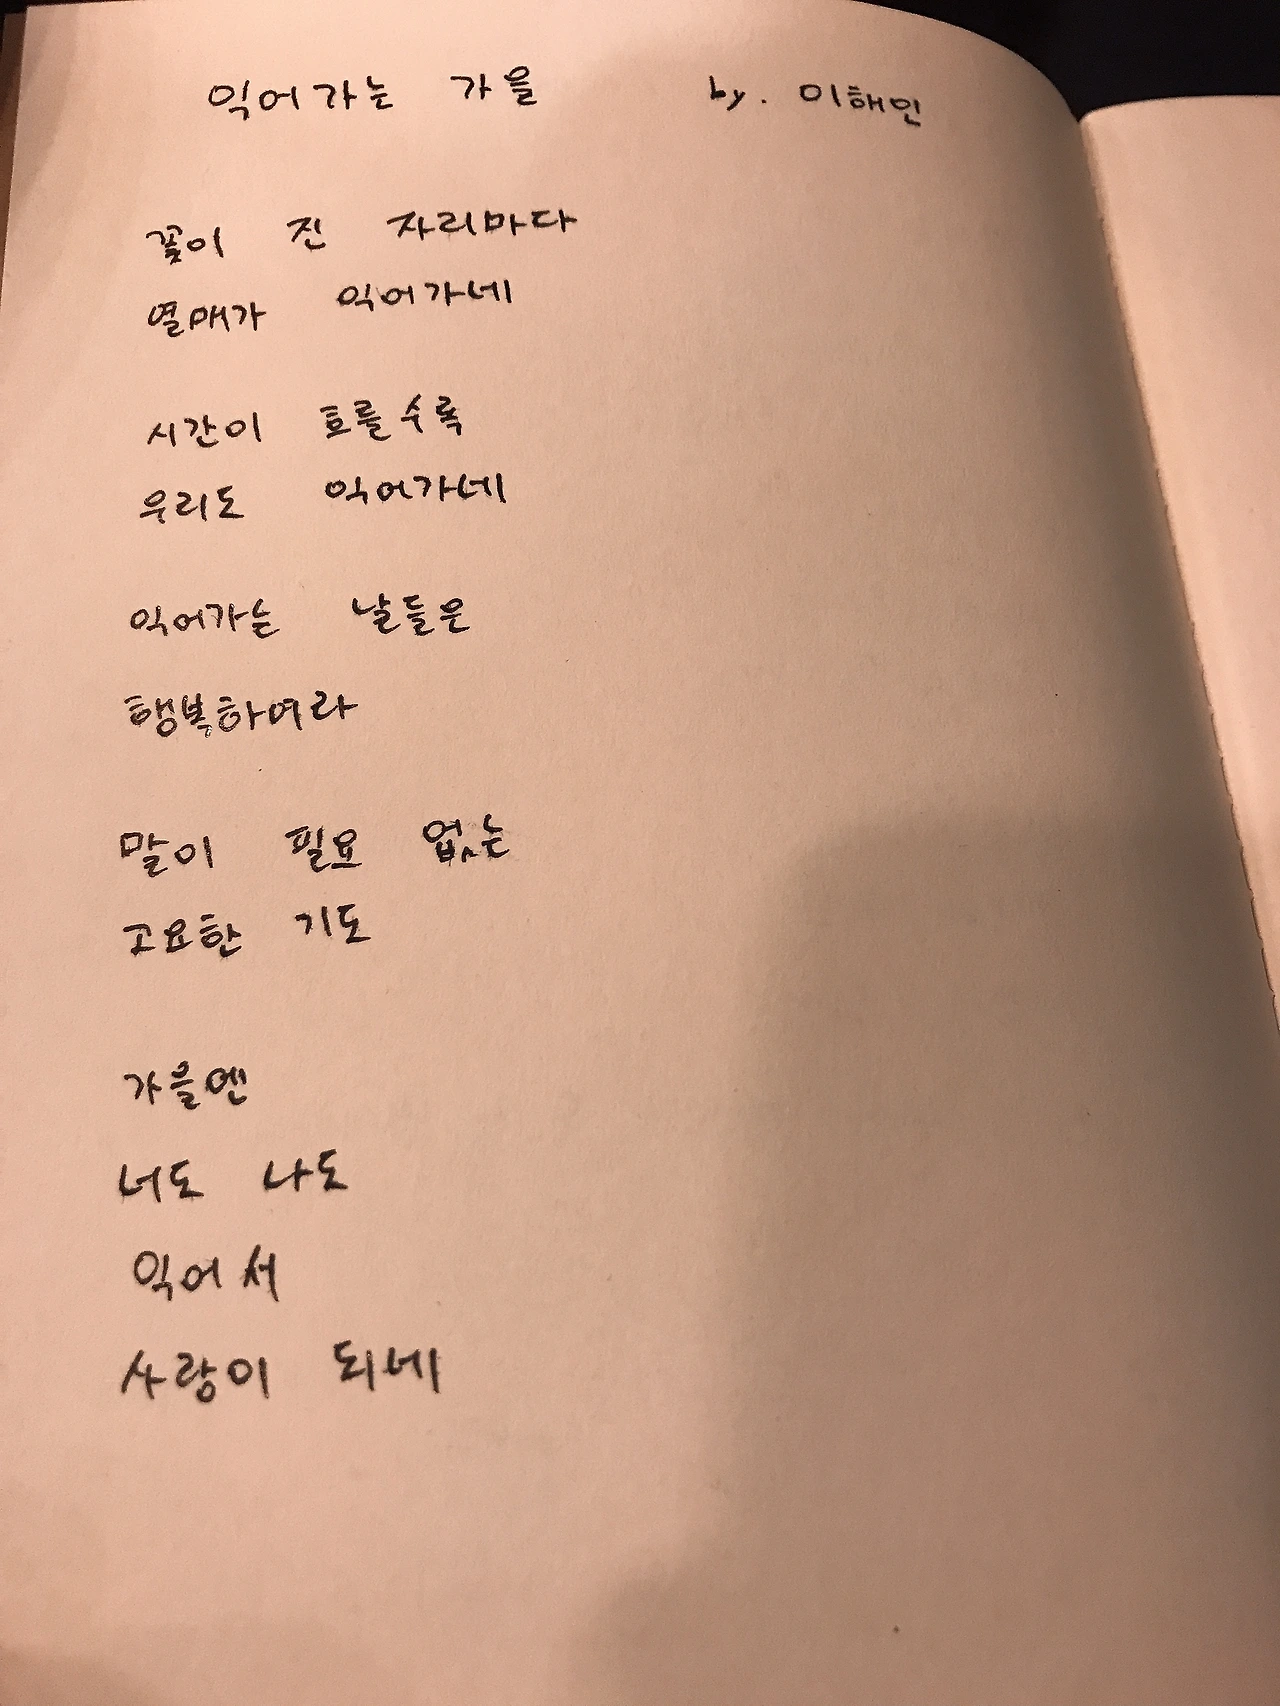 익어가는 가을 by. 이해인
꽃이 진 자리마다
열매가 익어가네
시간이 흐를수록
우리도 익어가네
익어가는 날들은
행복하여라
말이 필요 없는
고요한 기도
가을엔
너도 나도
익어서
사랑이 되네